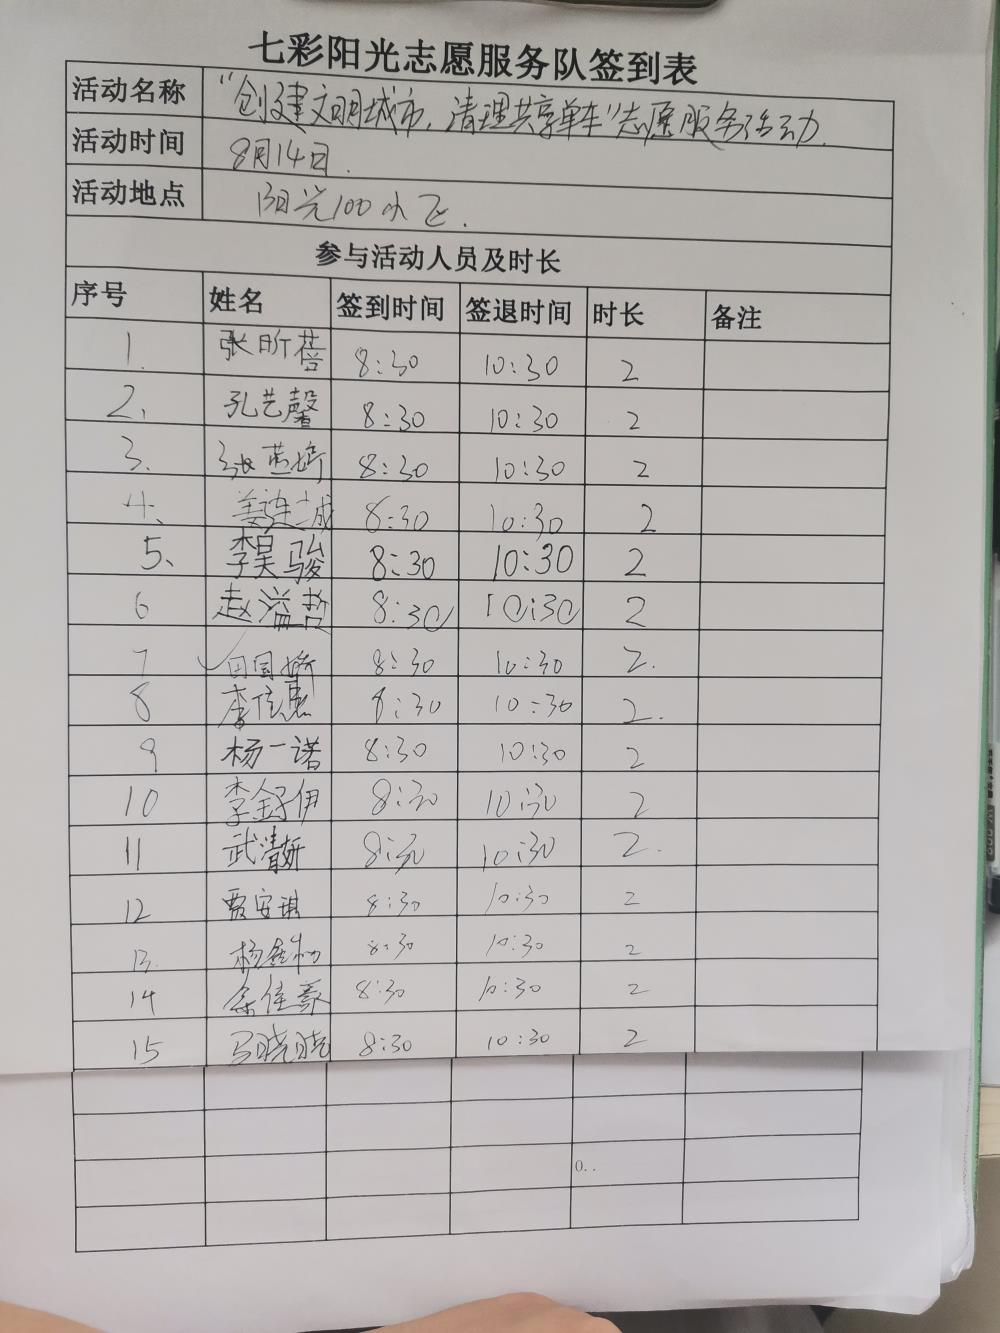 七彩阳光志愿服务队签到表
活动名称 "创建文明城市，清理共享单车"志愿服务活动.
活动时间 8月14日.
活动地点 阳光100小区.
参与活动人员及时长
序号 姓名 签到时间 签退时间 时长 备注
1. 张昕蓓 8:30 10:30 2
2、 孔艺馨 8:30 10:30 2
3、 张 8:30 10:30 2
4、 姜连诚 8:30 10:30 2
5、 李昊骏 8:30 10:30 2
6 赵溢哲 8:30 10:30 2
7 田国娇 8:30 10:30 2.
8 李佳惠 8:30 10:30 2.
9 杨一诺 8:30 10:30 2
10 李舒伊 8:30 10:30 2
11 武清妍 8:30 10:30 2.
12 贾安琪 8:30 10:30 2
13. 杨 8:30 10:30 2
14 佳 8:30 10:30 2
15 马晓晓 8:30 10:30 2
0..